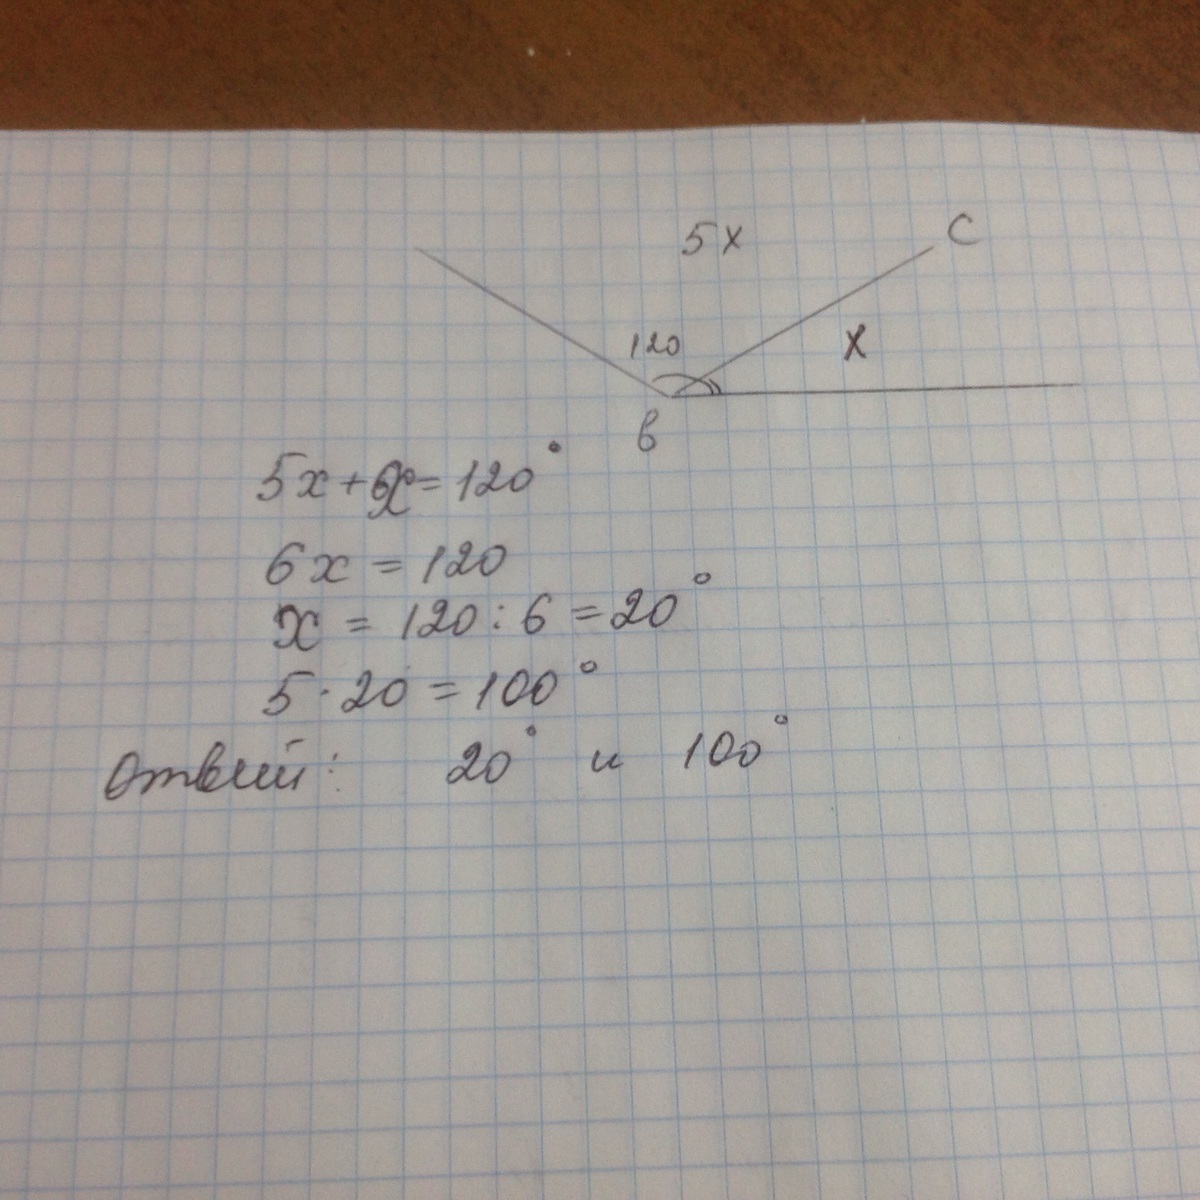 5x
C
120
x
B
5x + x = 120°
6x = 120
x = 120 : 6 = 20°
5 · 20 = 100°
Ответ: 20° и 100°